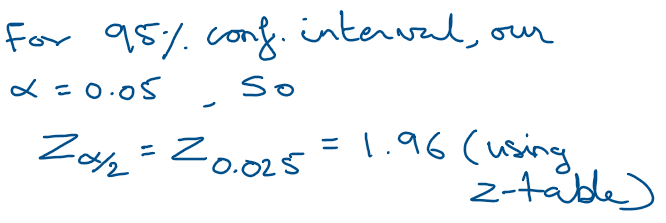 For 95% conf. interval, our
α = 0.05 , So
Z_{α/2} = Z_{0.025} = 1.96 (using
z-table)